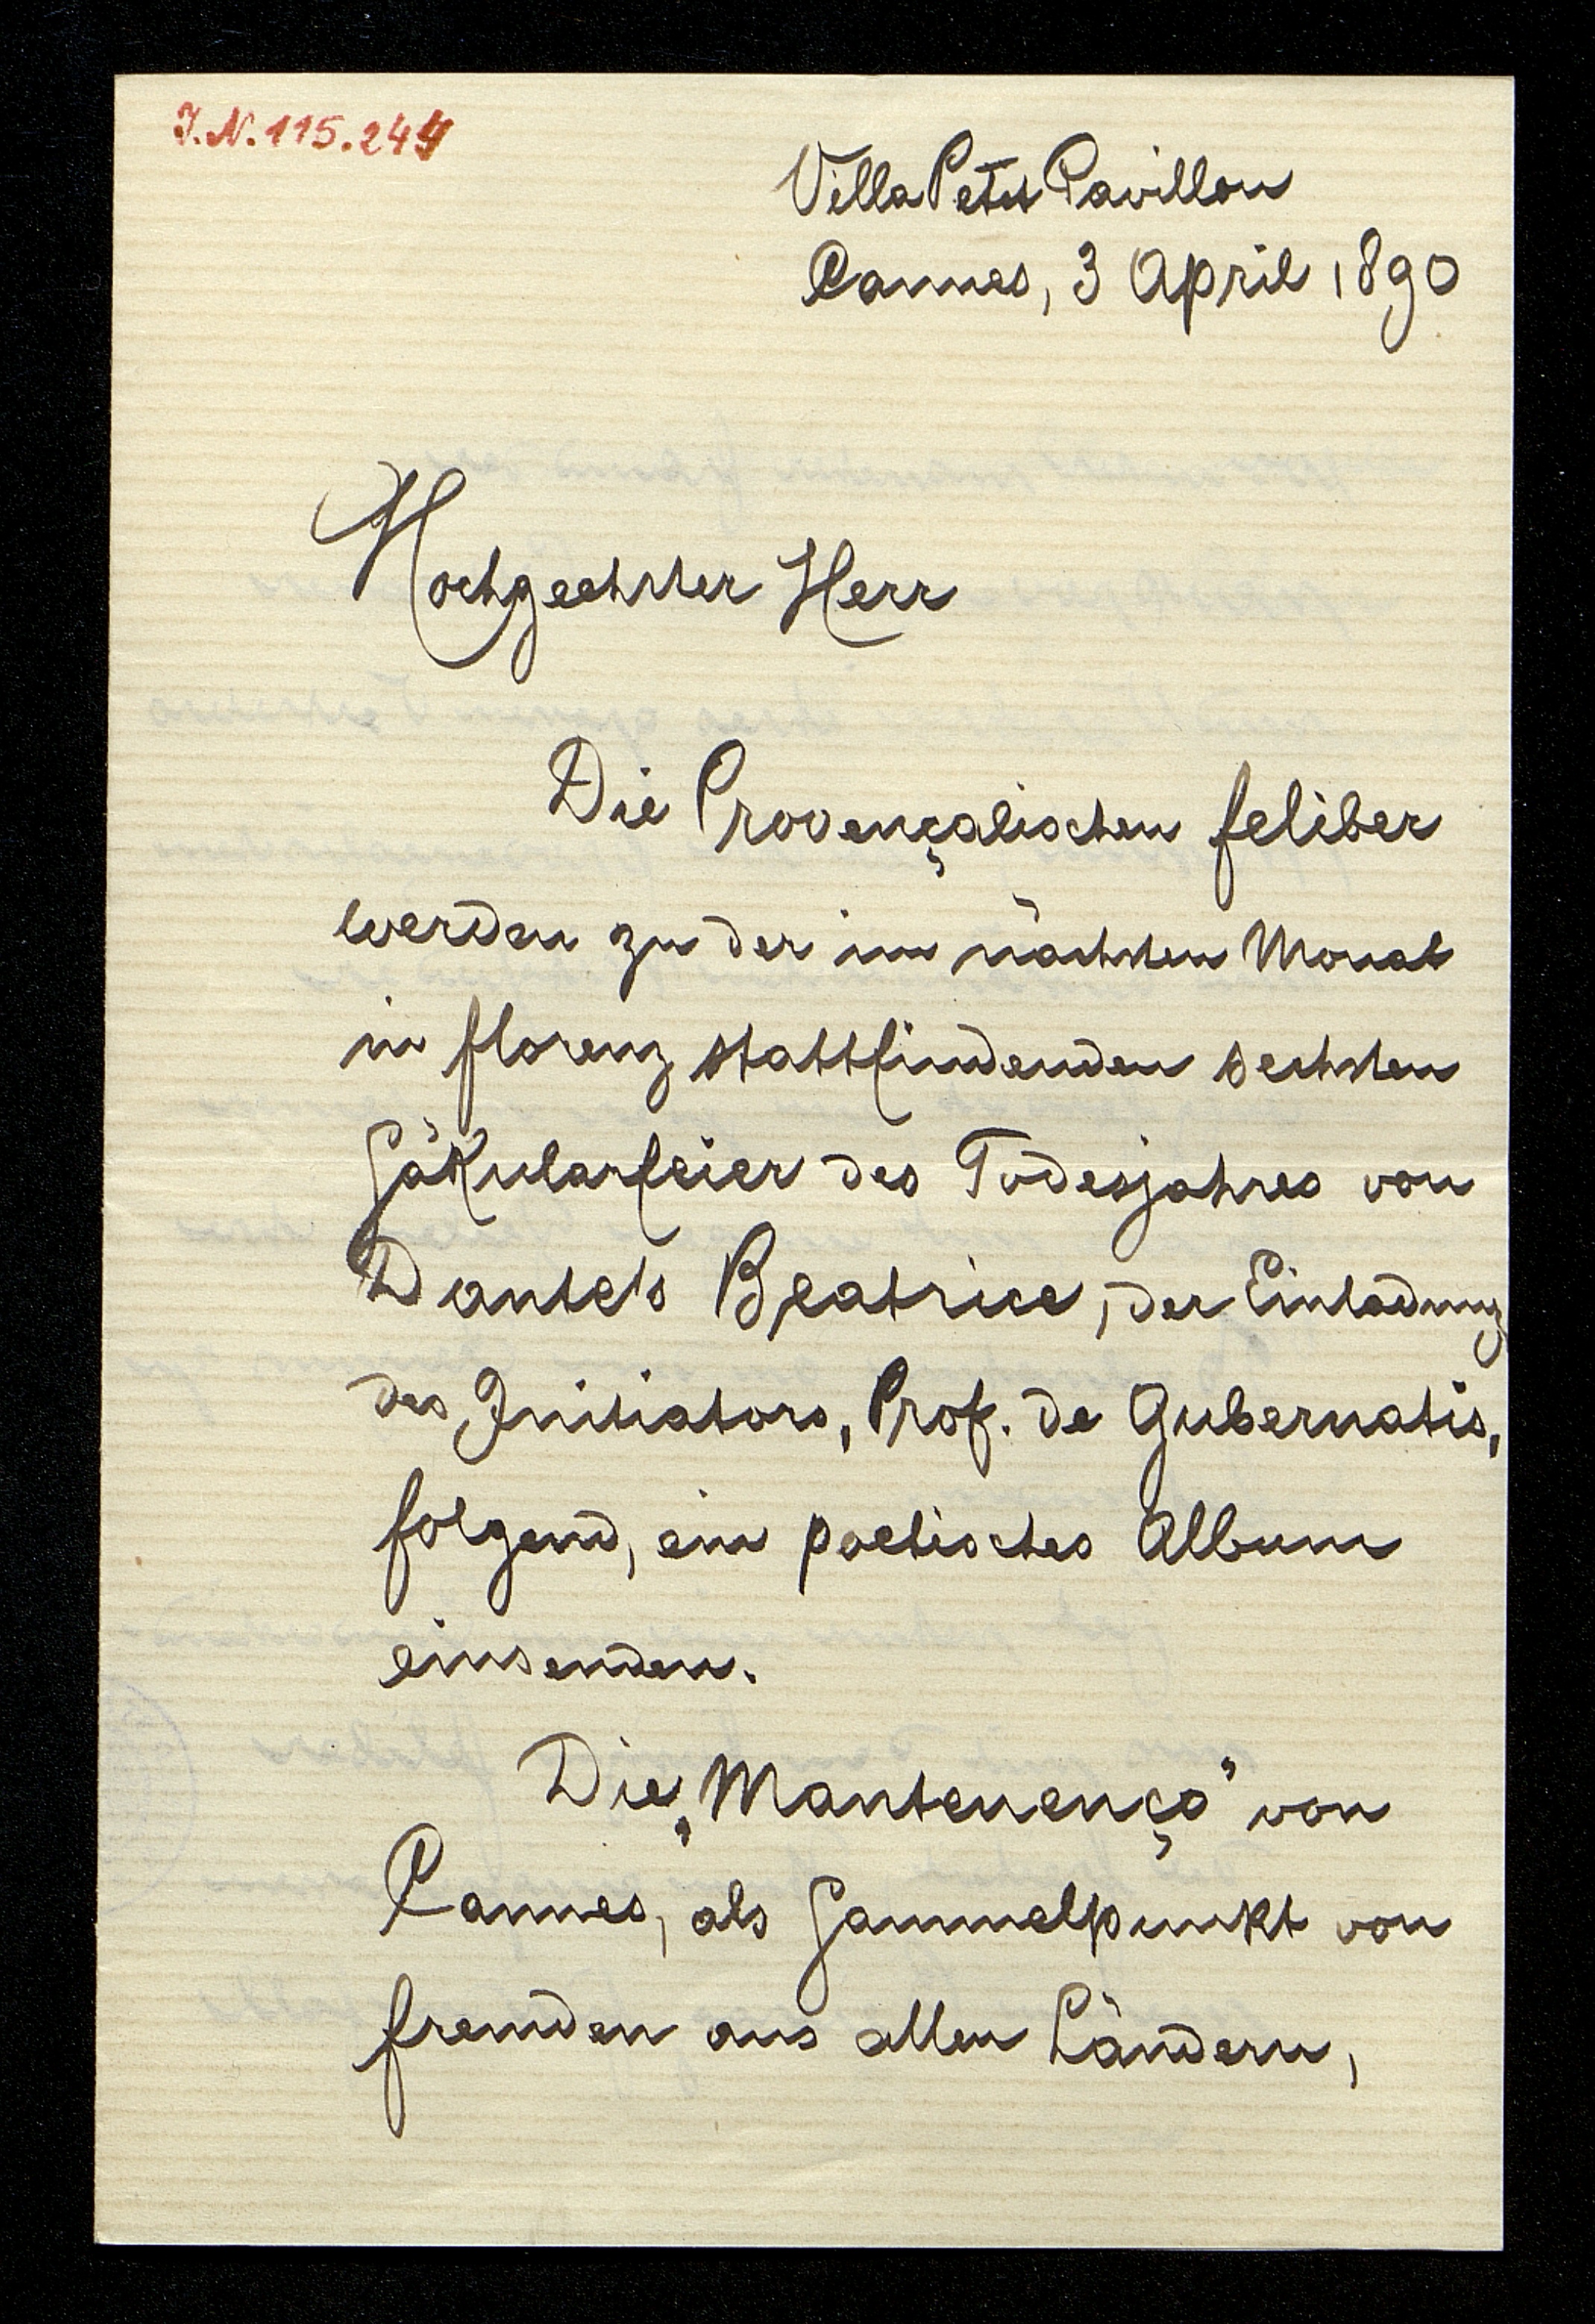 J.N. 115.244
Villa Petit Pavillon
Cannes, 3 April 1890
Hochgeehrter Herr
Die Provençalischen Feliber
werden zu der im nächsten Monat
in Florenz stattfindenden sechsten
Säkularfeier des Todesjahres von
Dante's Beatrice, der Einladung
des Initiators, Prof. de Gubernatis,
folgend, ein poetisches Album
einsenden.
Die „Mantenenço" von
Cannes, als Sammelpunkt von
Fremden aus allen Ländern,